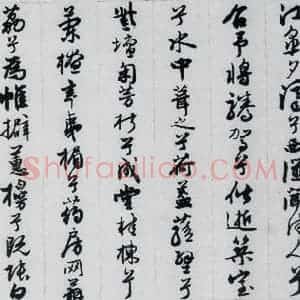 江皋夕濟兮西澨聞佳人兮
召予將騰駕兮偕逝築室
兮水中葺之兮荷蓋蓀壁兮
紫壇匊芳椒兮成堂桂棟兮
蘭橑辛夷楣兮藥房网薜
荔兮為帷擗蕙櫋兮既張白
Shufaziliao.com